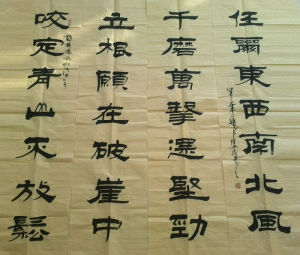 咬定青山不放鬆
立根願在破崖中
千磨萬擊還堅勁
任爾東西南北風